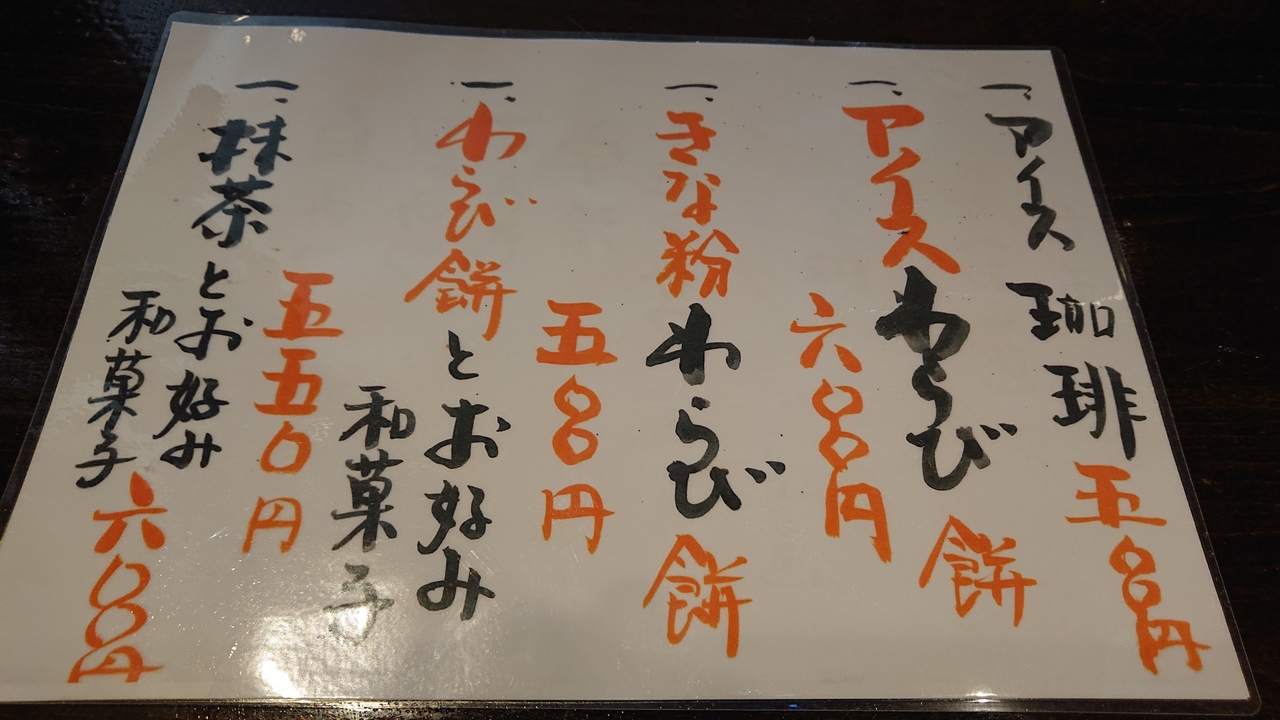 一、アイス珈琲五〇〇円
一、アイスわらび餅
六〇〇円
一、きな粉わらび餅
五〇〇円
一、わらび餅とお好み
和菓子
五五〇円
一、抹茶とお好み
和菓子
六〇〇円